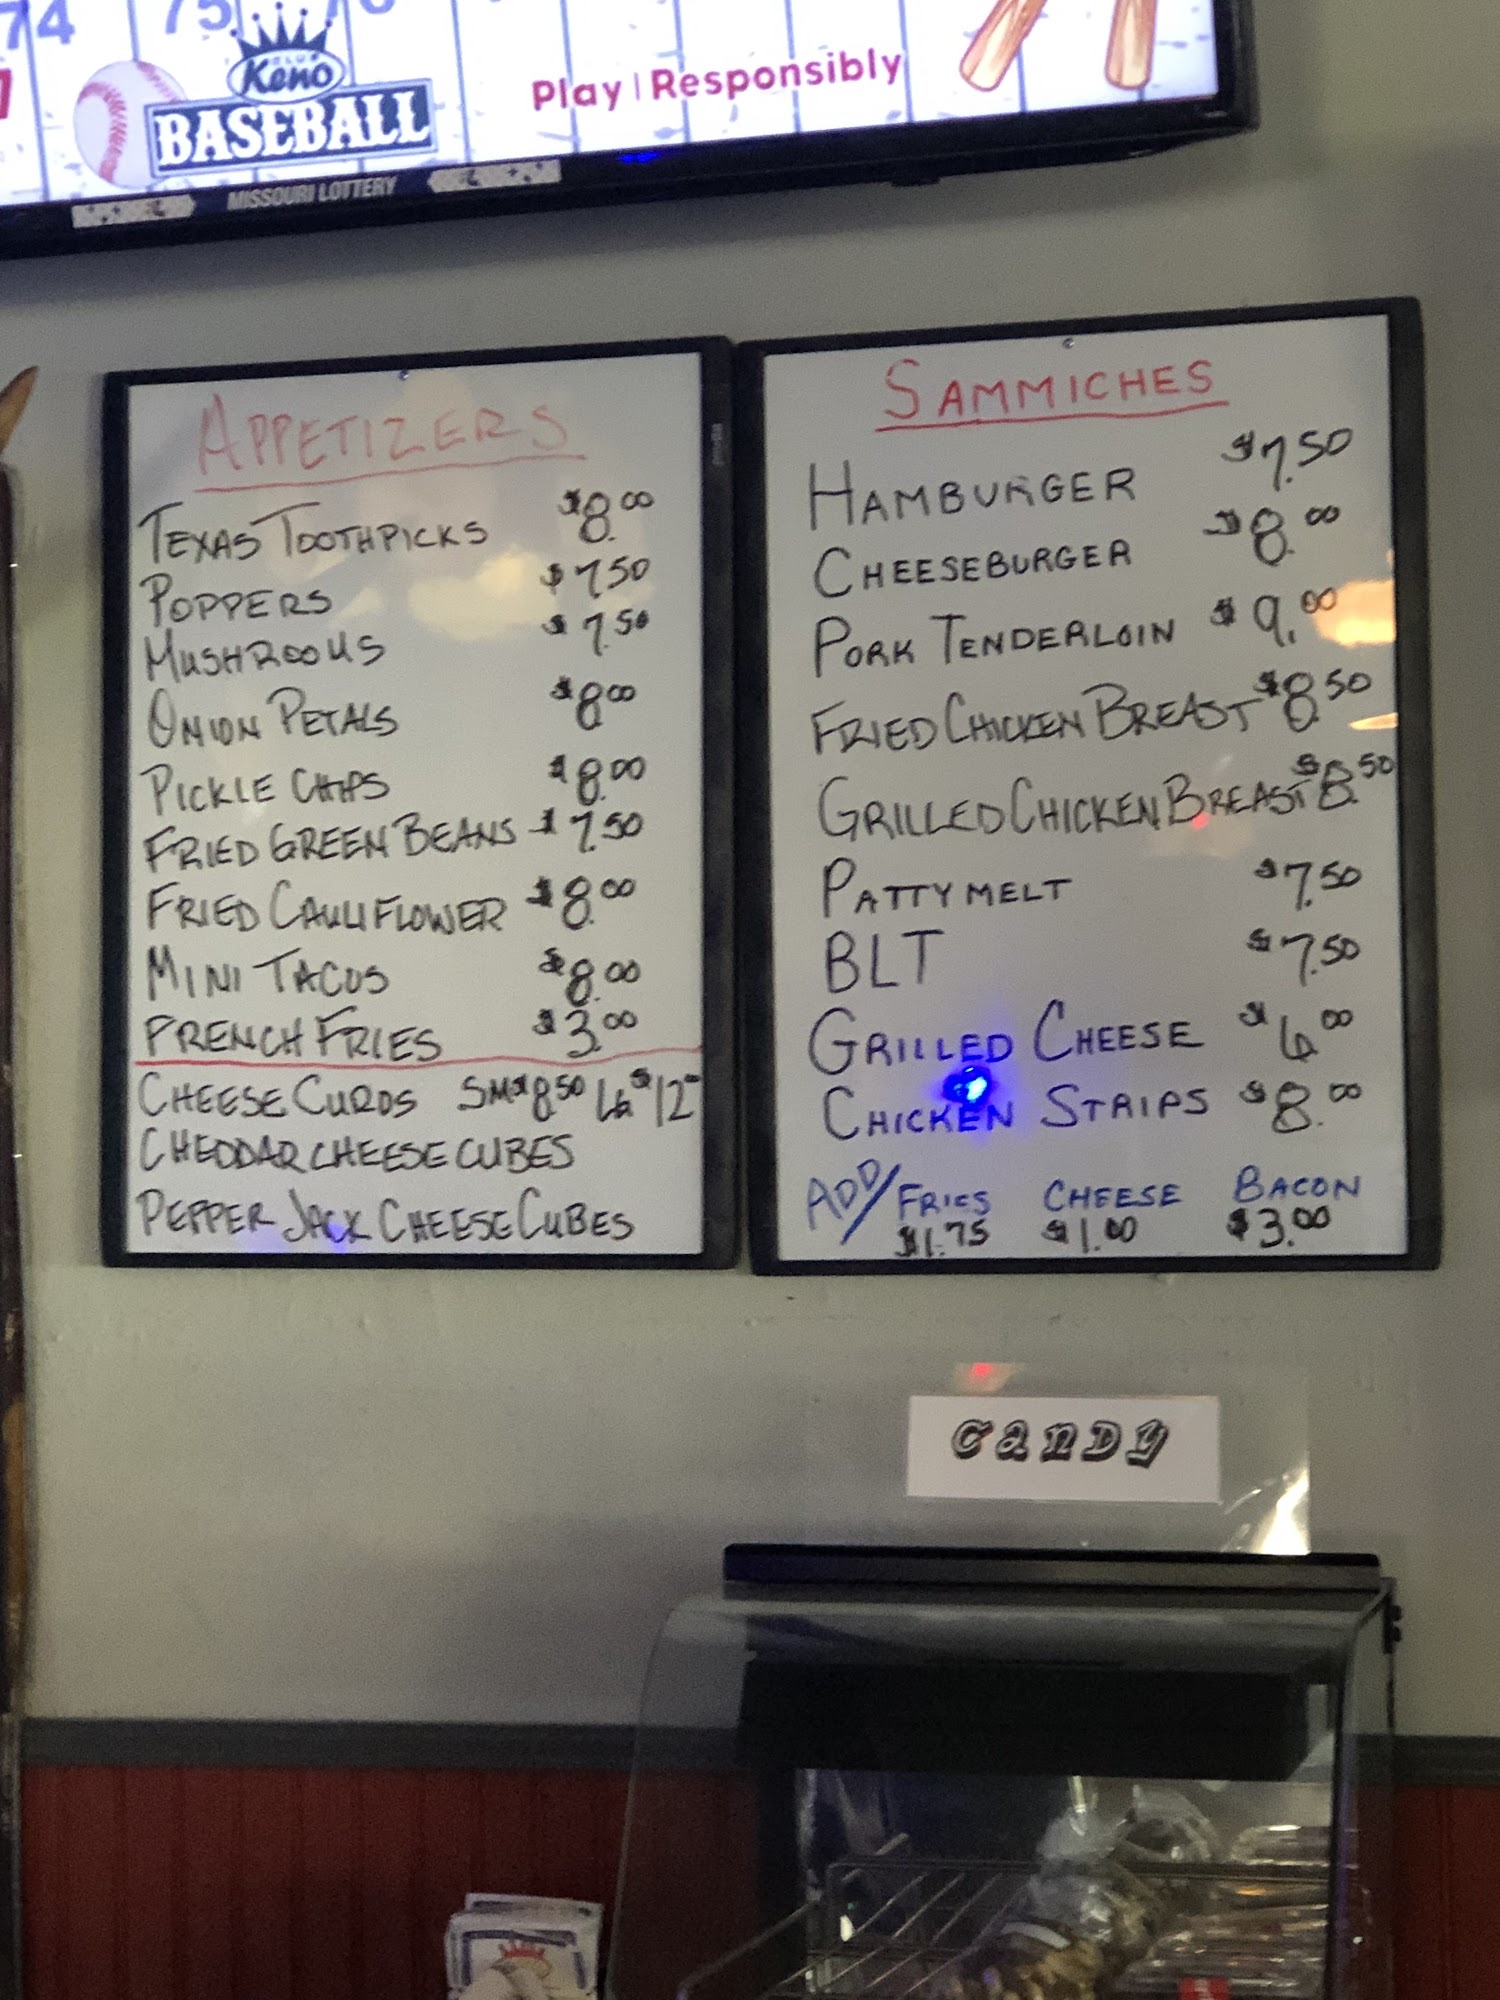 74 75 76
CLUB
Keno
BASEBALL
Play | Responsibly
MISSOURI LOTTERY
APPETIZERS
TEXAS TOOTHPICKS $8.00
POPPERS $7.50
MUSHROOMS $7.50
ONION PETALS $8.00
PICKLE CHIPS $8.00
FRIED GREEN BEANS $7.50
FRIED CAULIFLOWER $8.00
MINI TACOS $8.00
FRENCH FRIES $3.00
CHEESE CURDS SM $8.50 LG $12.00
CHEDDAR CHEESE CUBES
PEPPER JACK CHEESE CUBES
SAMMICHES
HAMBURGER $7.50
CHEESEBURGER $8.00
PORK TENDERLOIN $9.00
FRIED CHICKEN BREAST $8.50
GRILLED CHICKEN BREAST $8.50
PATTY MELT $7.50
BLT $7.50
GRILLED CHEESE $6.00
CHICKEN STRIPS $8.00
ADD/ FRIES CHEESE BACON
$1.75 $1.00 $3.00
CANDY